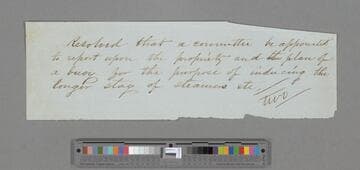 Resolved that a committee be appointed
to report upon the propriety and the plan of
a buoy for the purpose of inducing the
longer stay of steamers etc
two